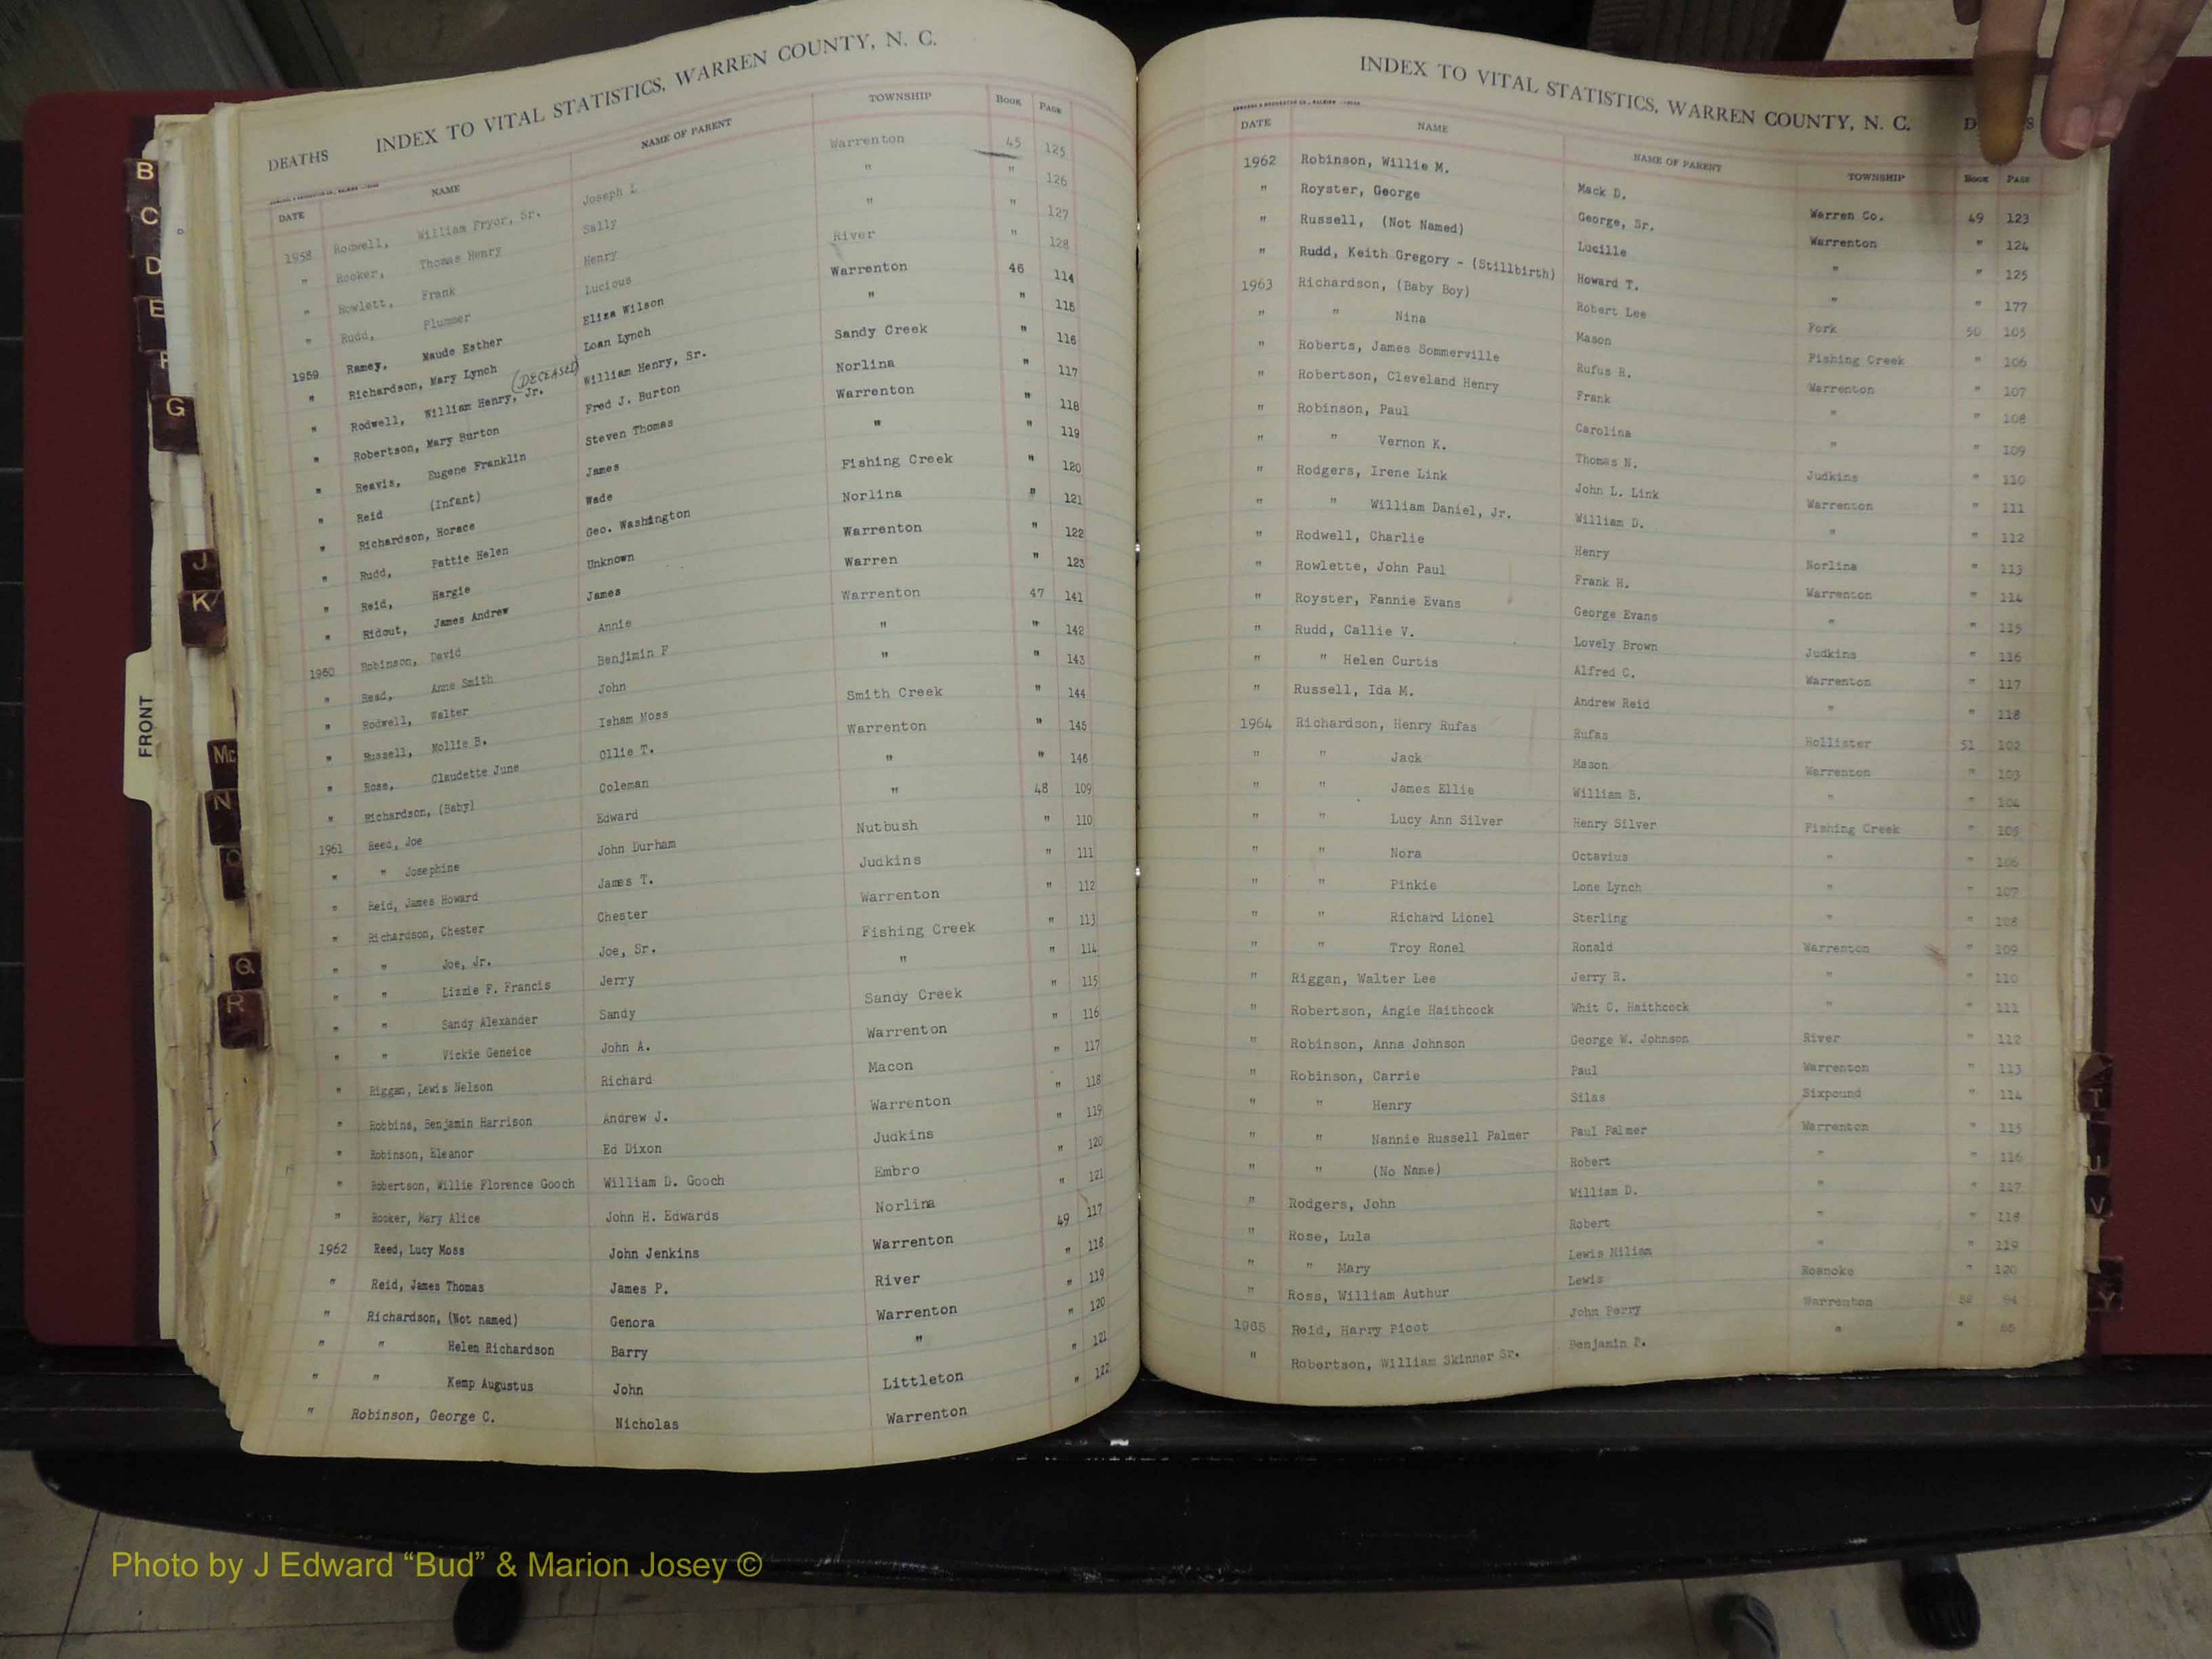 DEATHS INDEX TO VITAL STATISTICS, WARREN COUNTY, N. C.
DATE NAME NAME OF PARENT TOWNSHIP BOOK PAGE
1958 Rodwell, William Pryor, Sr. Joseph L Warrenton 45 125
" Rooker, Thomas Henry Sally " " 126
" Rowlett, Frank Henry " " 127
" Rudd, Plummer Lucious River " 128
1959 Ramey, Maude Esther Eliza Wilson Warrenton 46 114
" Richardson, Mary Lynch Loan Lynch " " 115
" Rodwell, William Henry, Jr. (DECEASED) William Henry, Sr. Sandy Creek " 116
" Robertson, Mary Burton Fred J. Burton Norlina " 117
" Reavis, Eugene Franklin Steven Thomas Warrenton " 118
" Reid (Infant) James " " 119
" Richardson, Horace Wade Fishing Creek " 120
" Rudd, Pattie Helen Geo. Washington Norlina " 121
" Reid, Hargie Unknown Warrenton " 122
" Ridout, James Andrew James Warren " 123
1960 Robinson, David Annie Warrenton 47 141
" Read, Anne Smith Benjimin F " " 142
" Rodwell, Walter John " " 143
" Russell, Mollie B. Isham Moss Smith Creek " 144
" Rose, Claudette June Ollie T. Warrenton " 145
" Richardson, (Baby) Coleman " " 146
1961 Reed, Joe Edward " 48 109
" " Josephine John Durham Nutbush " 110
" Reid, James Howard James T. Judkins " 111
" Richardson, Chester Chester Warrenton " 112
" " Joe, Jr. Joe, Sr. Fishing Creek " 113
" " Lizzie F. Francis Jerry " " 114
" " Sandy Alexander Sandy Sandy Creek " 115
" " Vickie Geneice John A. Warrenton " 116
" Riggan, Lewis Nelson Richard Macon " 117
" Robbins, Benjamin Harrison Andrew J. Warrenton " 118
" Robinson, Eleanor Ed Dixon Judkins " 119
" Robertson, Willie Florence Gooch William D. Gooch Embro " 120
" Rooker, Mary Alice John H. Edwards Norlina " 121
1962 Reed, Lucy Moss John Jenkins Warrenton 49 117
" Reid, James Thomas James P. River " 118
" Richardson, (Not named) Genora Warrenton " 119
" " Helen Richardson Barry " " 120
" " Kemp Augustus John Littleton " 121
" Robinson, George C. Nicholas Warrenton " 122
INDEX TO VITAL STATISTICS, WARREN COUNTY, N. C.
DATE NAME NAME OF PARENT TOWNSHIP BOOK PAGE
1962 Robinson, Willie M. Mack D. Warren Co. 49 123
" Royster, George George, Sr. Warrenton " 124
" Russell, (Not Named) Lucille " " 125
" Rudd, Keith Gregory - (Stillbirth) Howard T. " " 177
1963 Richardson, (Baby Boy) Robert Lee Fork 50 105
" " Nina Mason Fishing Creek " 106
" Roberts, James Sommerville Rufus R. Warrenton " 107
" Robertson, Cleveland Henry Frank " " 108
" Robinson, Paul Carolina " " 109
" " Vernon K. Thomas N. Judkins " 110
" Rodgers, Irene Link John L. Link Warrenton " 111
" " William Daniel, Jr. William D. " " 112
" Rodwell, Charlie Henry Norlina " 113
" Rowlette, John Paul Frank H. Warrenton " 114
" Royster, Fannie Evans George Evans " " 115
" Rudd, Callie V. Lovely Brown Judkins " 116
" " Helen Curtis Alfred C. Warrenton " 117
" Russell, Ida M. Andrew Reid " " 118
1964 Richardson, Henry Rufas Rufas Hollister 51 102
" " Jack Mason Warrenton " 103
" " James Ellie William B. " " 104
" " Lucy Ann Silver Henry Silver Fishing Creek " 105
" " Nora Octavius " " 106
" " Pinkie Lone Lynch " " 107
" " Richard Lionel Sterling " " 108
" " Troy Ronel Ronald Warrenton " 109
" Riggan, Walter Lee Jerry R. " " 110
" Robertson, Angie Haithcock Whit C. Haithcock " " 111
" Robinson, Anna Johnson George W. Johnson River " 112
" Robinson, Carrie Paul Warrenton " 113
" " Henry Silas Sixpound " 114
" " Nannie Russell Palmer Paul Palmer Warrenton " 115
" " (No Name) Robert " " 116
" Rodgers, John William D. " " 117
" Rose, Lula Robert " " 118
" " Mary Lewis Miliam " " 119
" Ross, William Authur Lewis Roanoke " 120
1965 Reid, Harry Picot John Perry Warrenton 52
" Robertson, William Skinner Sr. Benjamin P. " "
B
C
D
E
F
G
J
K
FRONT
Mc
N
O
Q
R
T
U
V
Y
Photo by J Edward “Bud” & Marion Josey ©